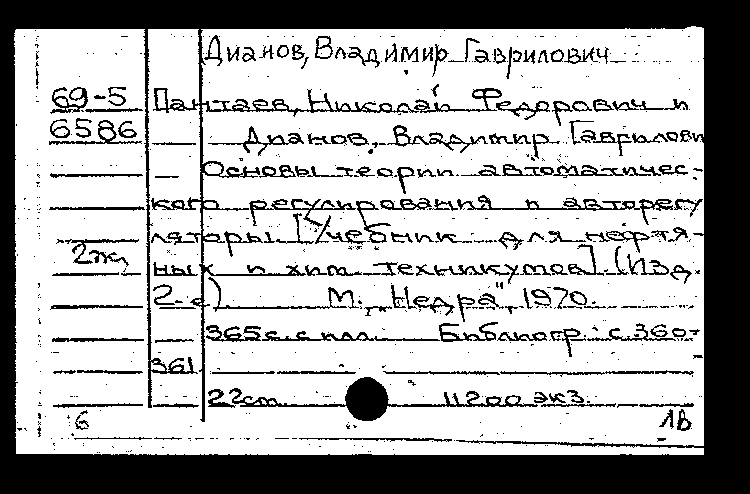 Дианов, Владимир Гаврилович
69-5 Пантаев, Николай Федорович и
6586 Дианов, Владимир Гаврилови
Основы теории автоматичес-
кого регулирования и авторегу
ляторы. [Учебник для нефтя-
2 экз
ных и хим. техникумов]. (Изд.
2-е). М., "Недра", 1970.
365 с. с илл. Библиогр.: с. 360-
361
22 см. 11200 экз.
6 1в